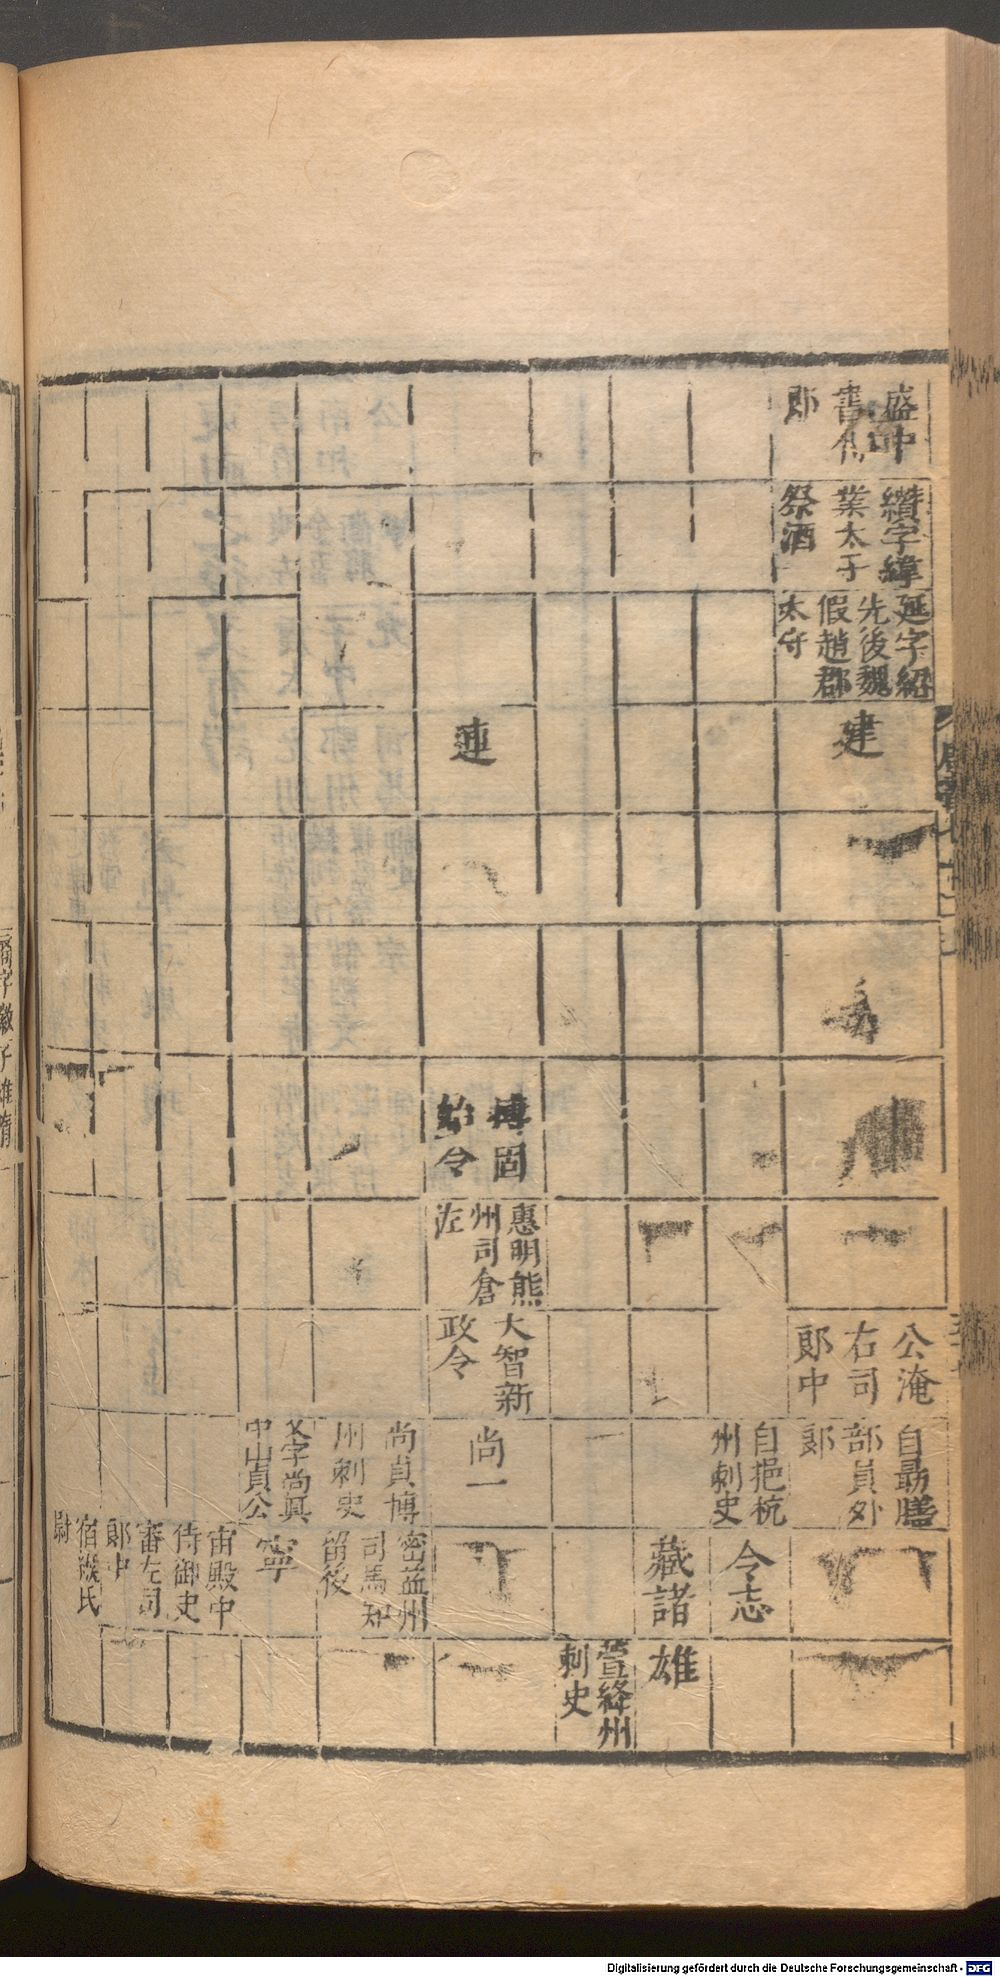 盛中
書
郎
纘字緯
業太子
祭酒
延字紹
先後魏
假趙郡
太守
建
公淹
右司
郎中
自勗膳
部員外
郎
自挹杭
州刺史
令志
藏諸
雄
萱絳州
刺史
蓮
博固
始令
惠明熊
州司倉
佐
大智新
政令
尚一
尚貞博
州刺史
密益州
司馬知
留後
父字尚真
中山貞公
寧
宙殿中
侍御史
審左司
郎中
宿緱氏
尉
Digitalisierung gefördert durch die Deutsche Forschungsgemeinschaft - DFG